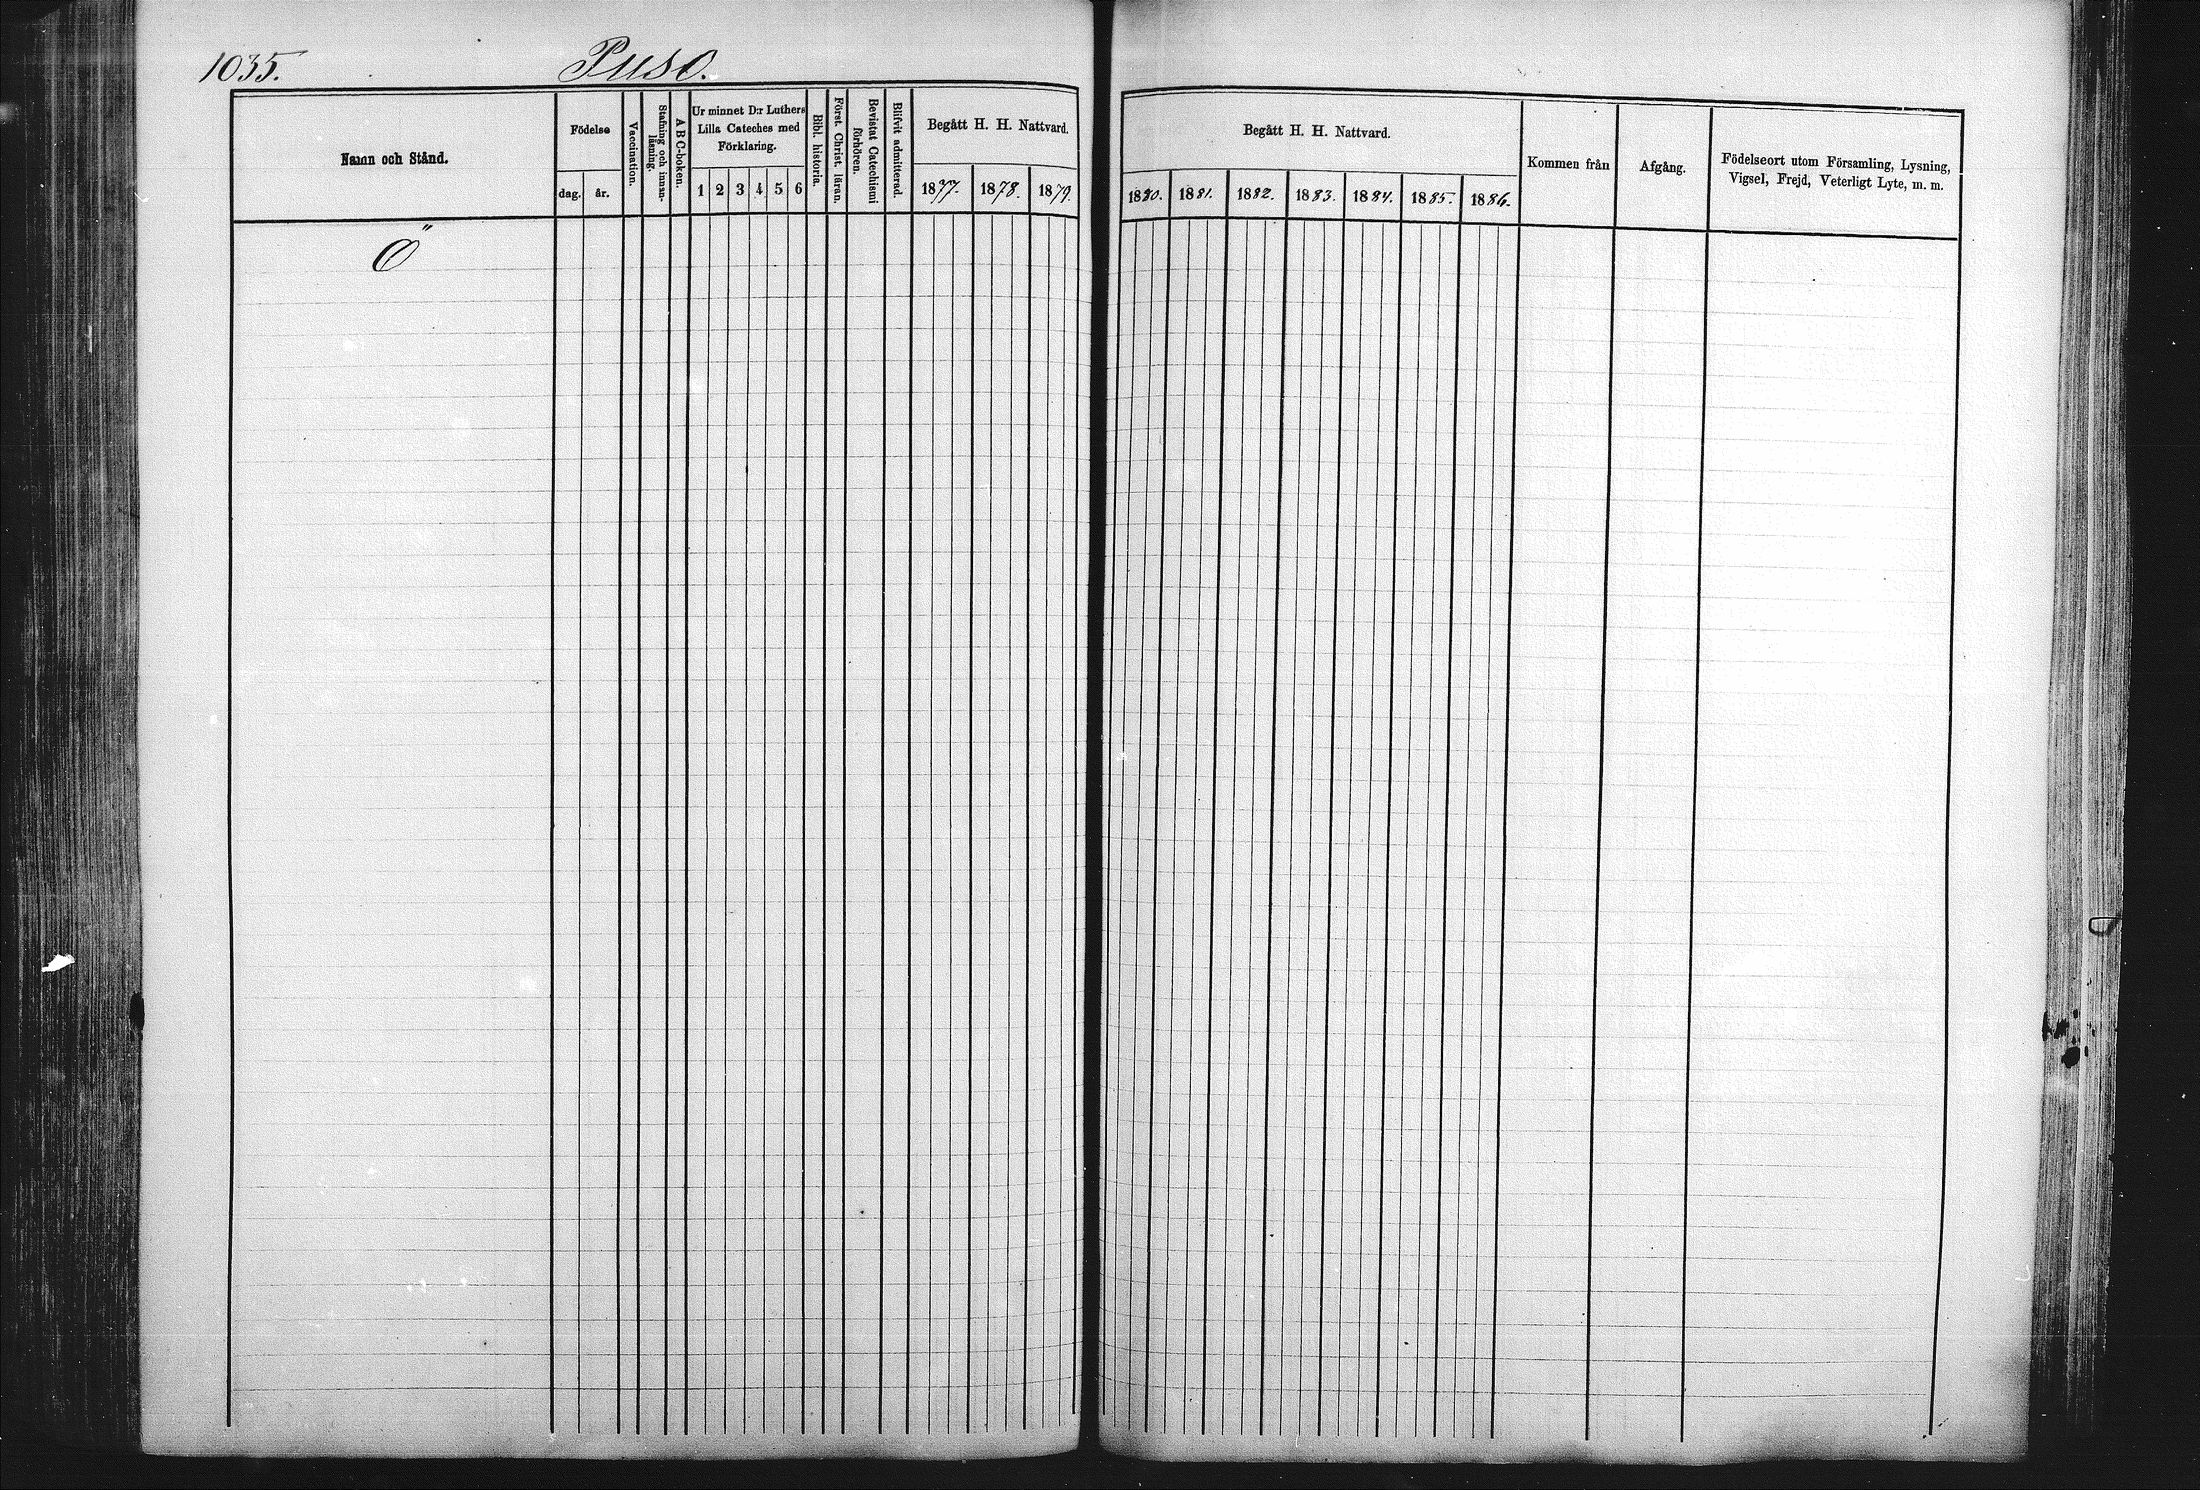 1035. Puso.
Namn och Stånd.
Födelse
dag. år.
Vaccination.
Stafning och innanläsning.
A B C-boken.
Ur minnet D:r Luthers
Lilla Cateches med
Förklaring.
1 2 3 4 5 6
Bibl. historia.
Först. Christ. läran.
Bevistat Catechismi
förhören.
Blifvit admitterad.
Begått H. H. Nattvard.
1877. 1878. 1879.
Begått H. H. Nattvard.
1880. 1881. 1882. 1883. 1884. 1885. 1886.
Kommen från
Afgång.
Födelseort utom Församling, Lysning,
Vigsel, Frejd, Veterligt Lyte, m. m.
Ö